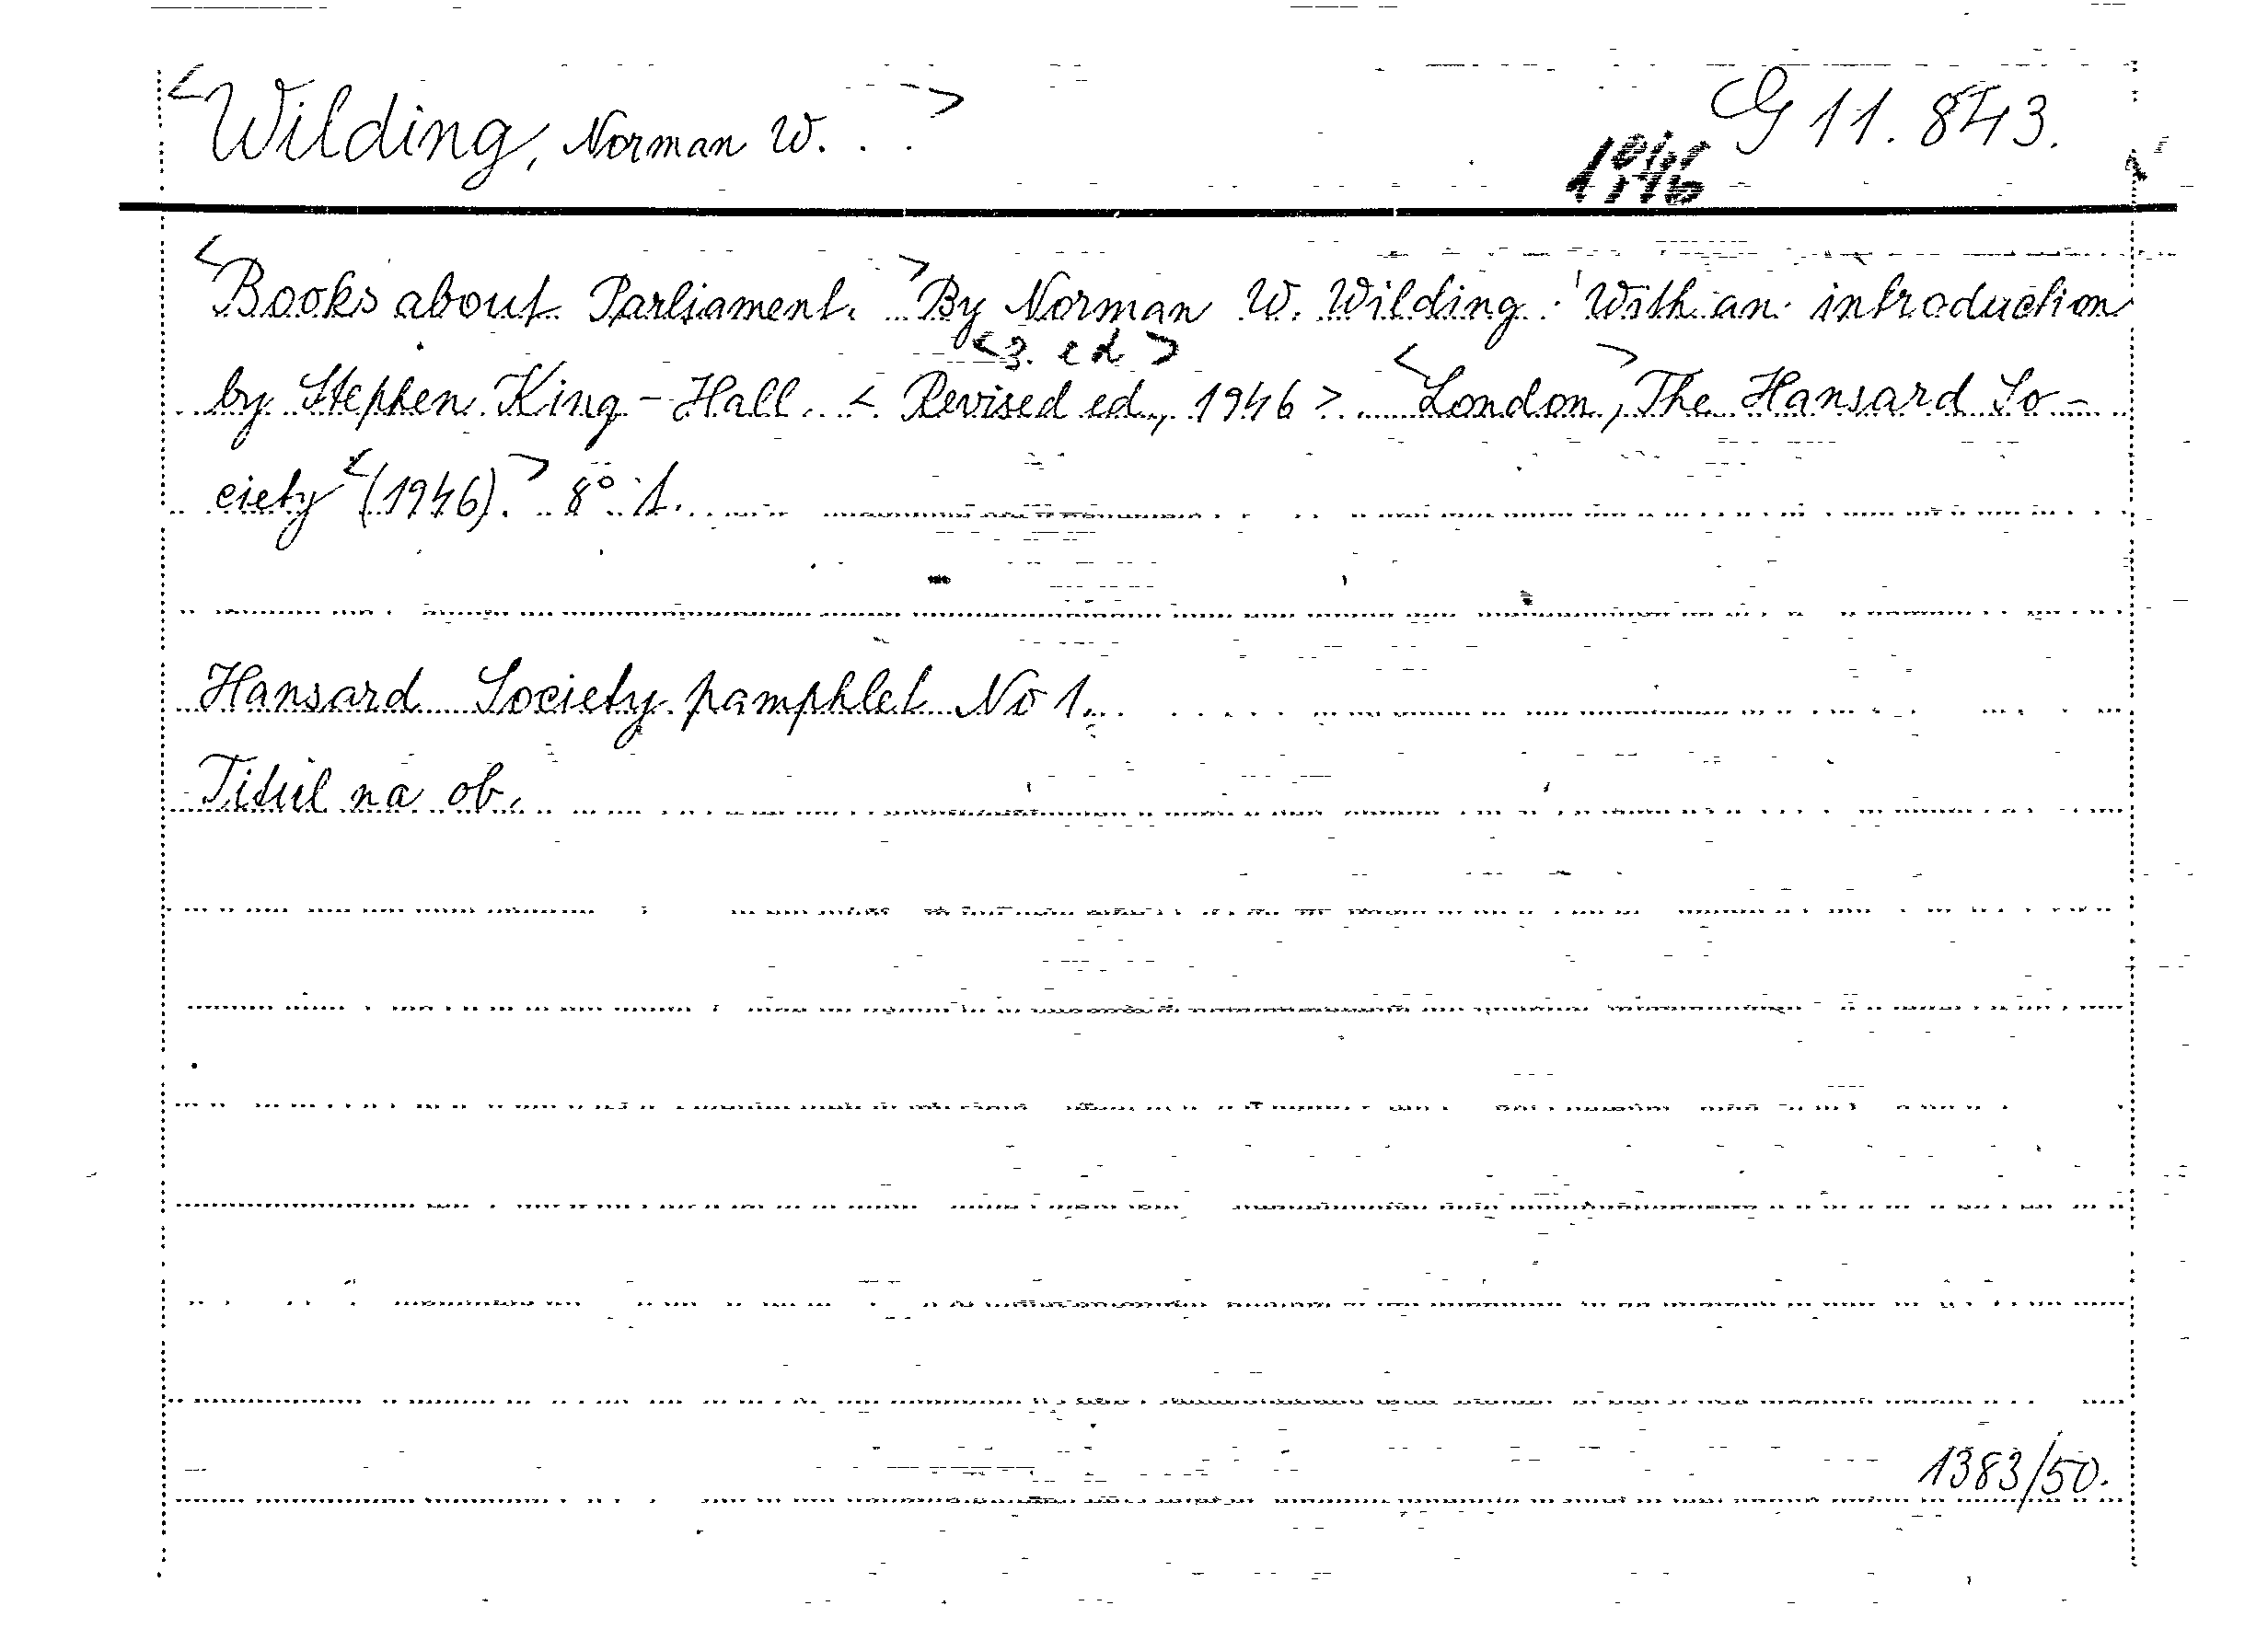 <Wilding, Norman W. . .> G 11.843.
1946
<Books about Parliament.> By Norman W. Wilding. With an introduction
<3. ed>
by Stephen King-Hall. <Revised ed., 1946> <London,> The Hansard So-
ciety <(1946).> 8° 1.
Hansard Society pamphlet No 1.
Titul na ob.
1383/50.